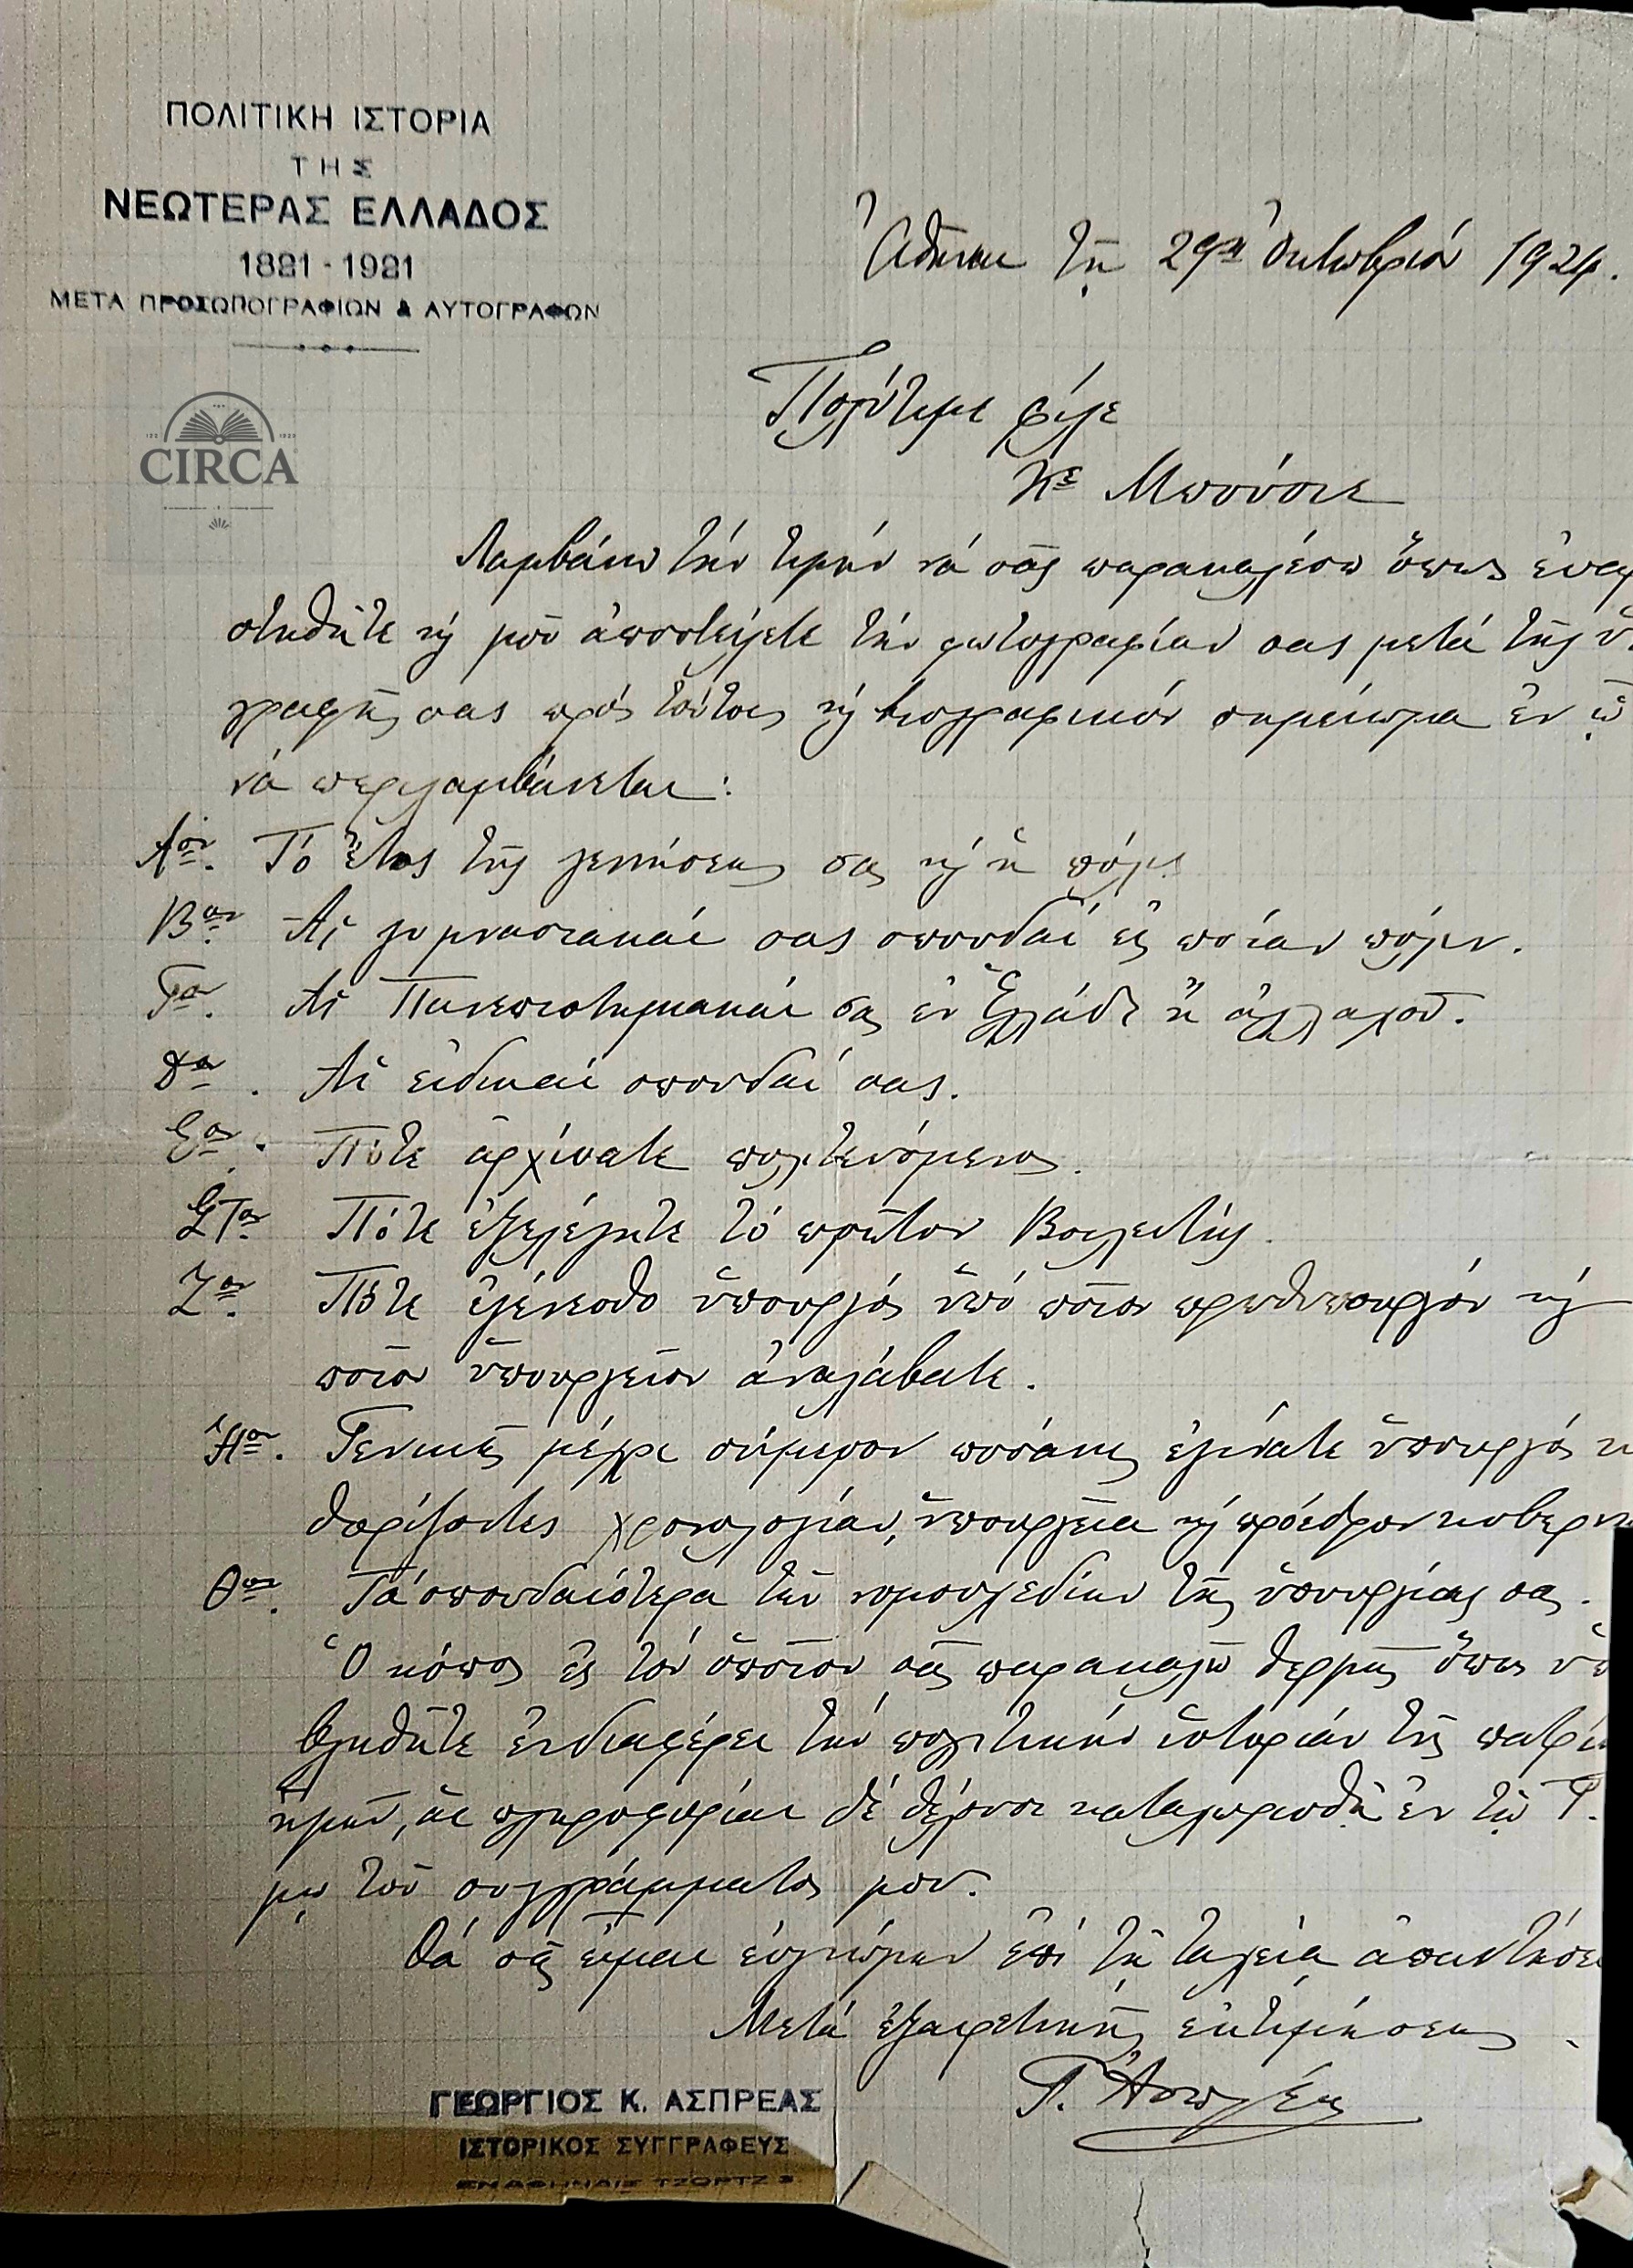 ΠΟΛΙΤΙΚΗ ΙΣΤΟΡΙΑ
ΤΗΣ
ΝΕΩΤΕΡΑΣ ΕΛΛΑΔΟΣ
1821 - 1921
ΜΕΤΑ ΠΡΟΣΩΠΟΓΡΑΦΙΩΝ & ΑΥΤΟΓΡΑΦΩΝ
CIRCA
Ἀθῆναι τῇ 29ῃ Ὀκτωβρίου 1924.
Πολύτιμε φίλε
Κε Μπούσιε
Λαμβάνω τήν τιμήν νά σᾶς παρακαλέσω ὅπως εὐαρ
στηθῆτε καί μοῦ ἀποστείλετε τήν φωτογραφίαν σας μετά τῆς ὑ
γραφῆς σας πρός τούτοις καί βιογραφικόν σημείωμα ἐν ᾧ
νά περιλαμβάνεται:
Αον. Τό ἔτος τῆς γεννήσεως σας καί ἡ πόλις
Βον. Αἱ γυμνασιακαί σας σπουδαί εἰς ποίαν πόλιν.
Γον. Αἱ Πανεπιστημιακαί σας ἐν Ἑλλάδι ἤ ἀλλαχοῦ.
Δον. Αἱ εἰδικαί σπουδαί σας.
Εον. Πότε ἀρχίσατε πολιτευόμενος.
ΣΤον. Πότε ἐξελέγητε τό πρῶτον Βουλευτής.
Ζον. Πότε ἐγένεσθε ὑπουργός ὑπό ποῖον πρωθυπουργόν καί
ποῖον ὑπουργεῖον ἀναλάβατε.
Ηον. Γενικῶς μέχρι σήμερον ποσάκις ἐγίνατε ὑπουργός κα
θορίζοντες χρονολογίαν, ὑπουργεῖα καί πρόεδρον κυβερνή
Θον. Τά σπουδαιότερα τῶν νομοσχεδίων τῆς ὑπουργίας σας.
Ὁ κόπος εἰς τόν ὁποῖον σᾶς παρακαλῶ θερμῶς ὅπως ὑπο
βληθῆτε ἐνδιαφέρει τήν πολιτικήν ἱστορίαν τῆς πατρίδ
ἡμῶν, αἱ πληροφορίαι δέ θέλουσι καταχωρισθῆ ἐν τῷ Γ.
μῳ τοῦ συγγράμματός μου.
Θά σᾶς εἶμαι εὐγνώμων ἐπί τῇ ταχείᾳ ἀπαντήσει
Μετά ἐξαιρετικῆς ἐκτιμήσεως
Γ. Ἀσπρέας
ΓΕΩΡΓΙΟΣ Κ. ΑΣΠΡΕΑΣ
ΙΣΤΟΡΙΚΟΣ ΣΥΓΓΡΑΦΕΥΣ
ΕΝ ΑΘΗΝΑΙΣ ΤΖΩΡΤΖ 3